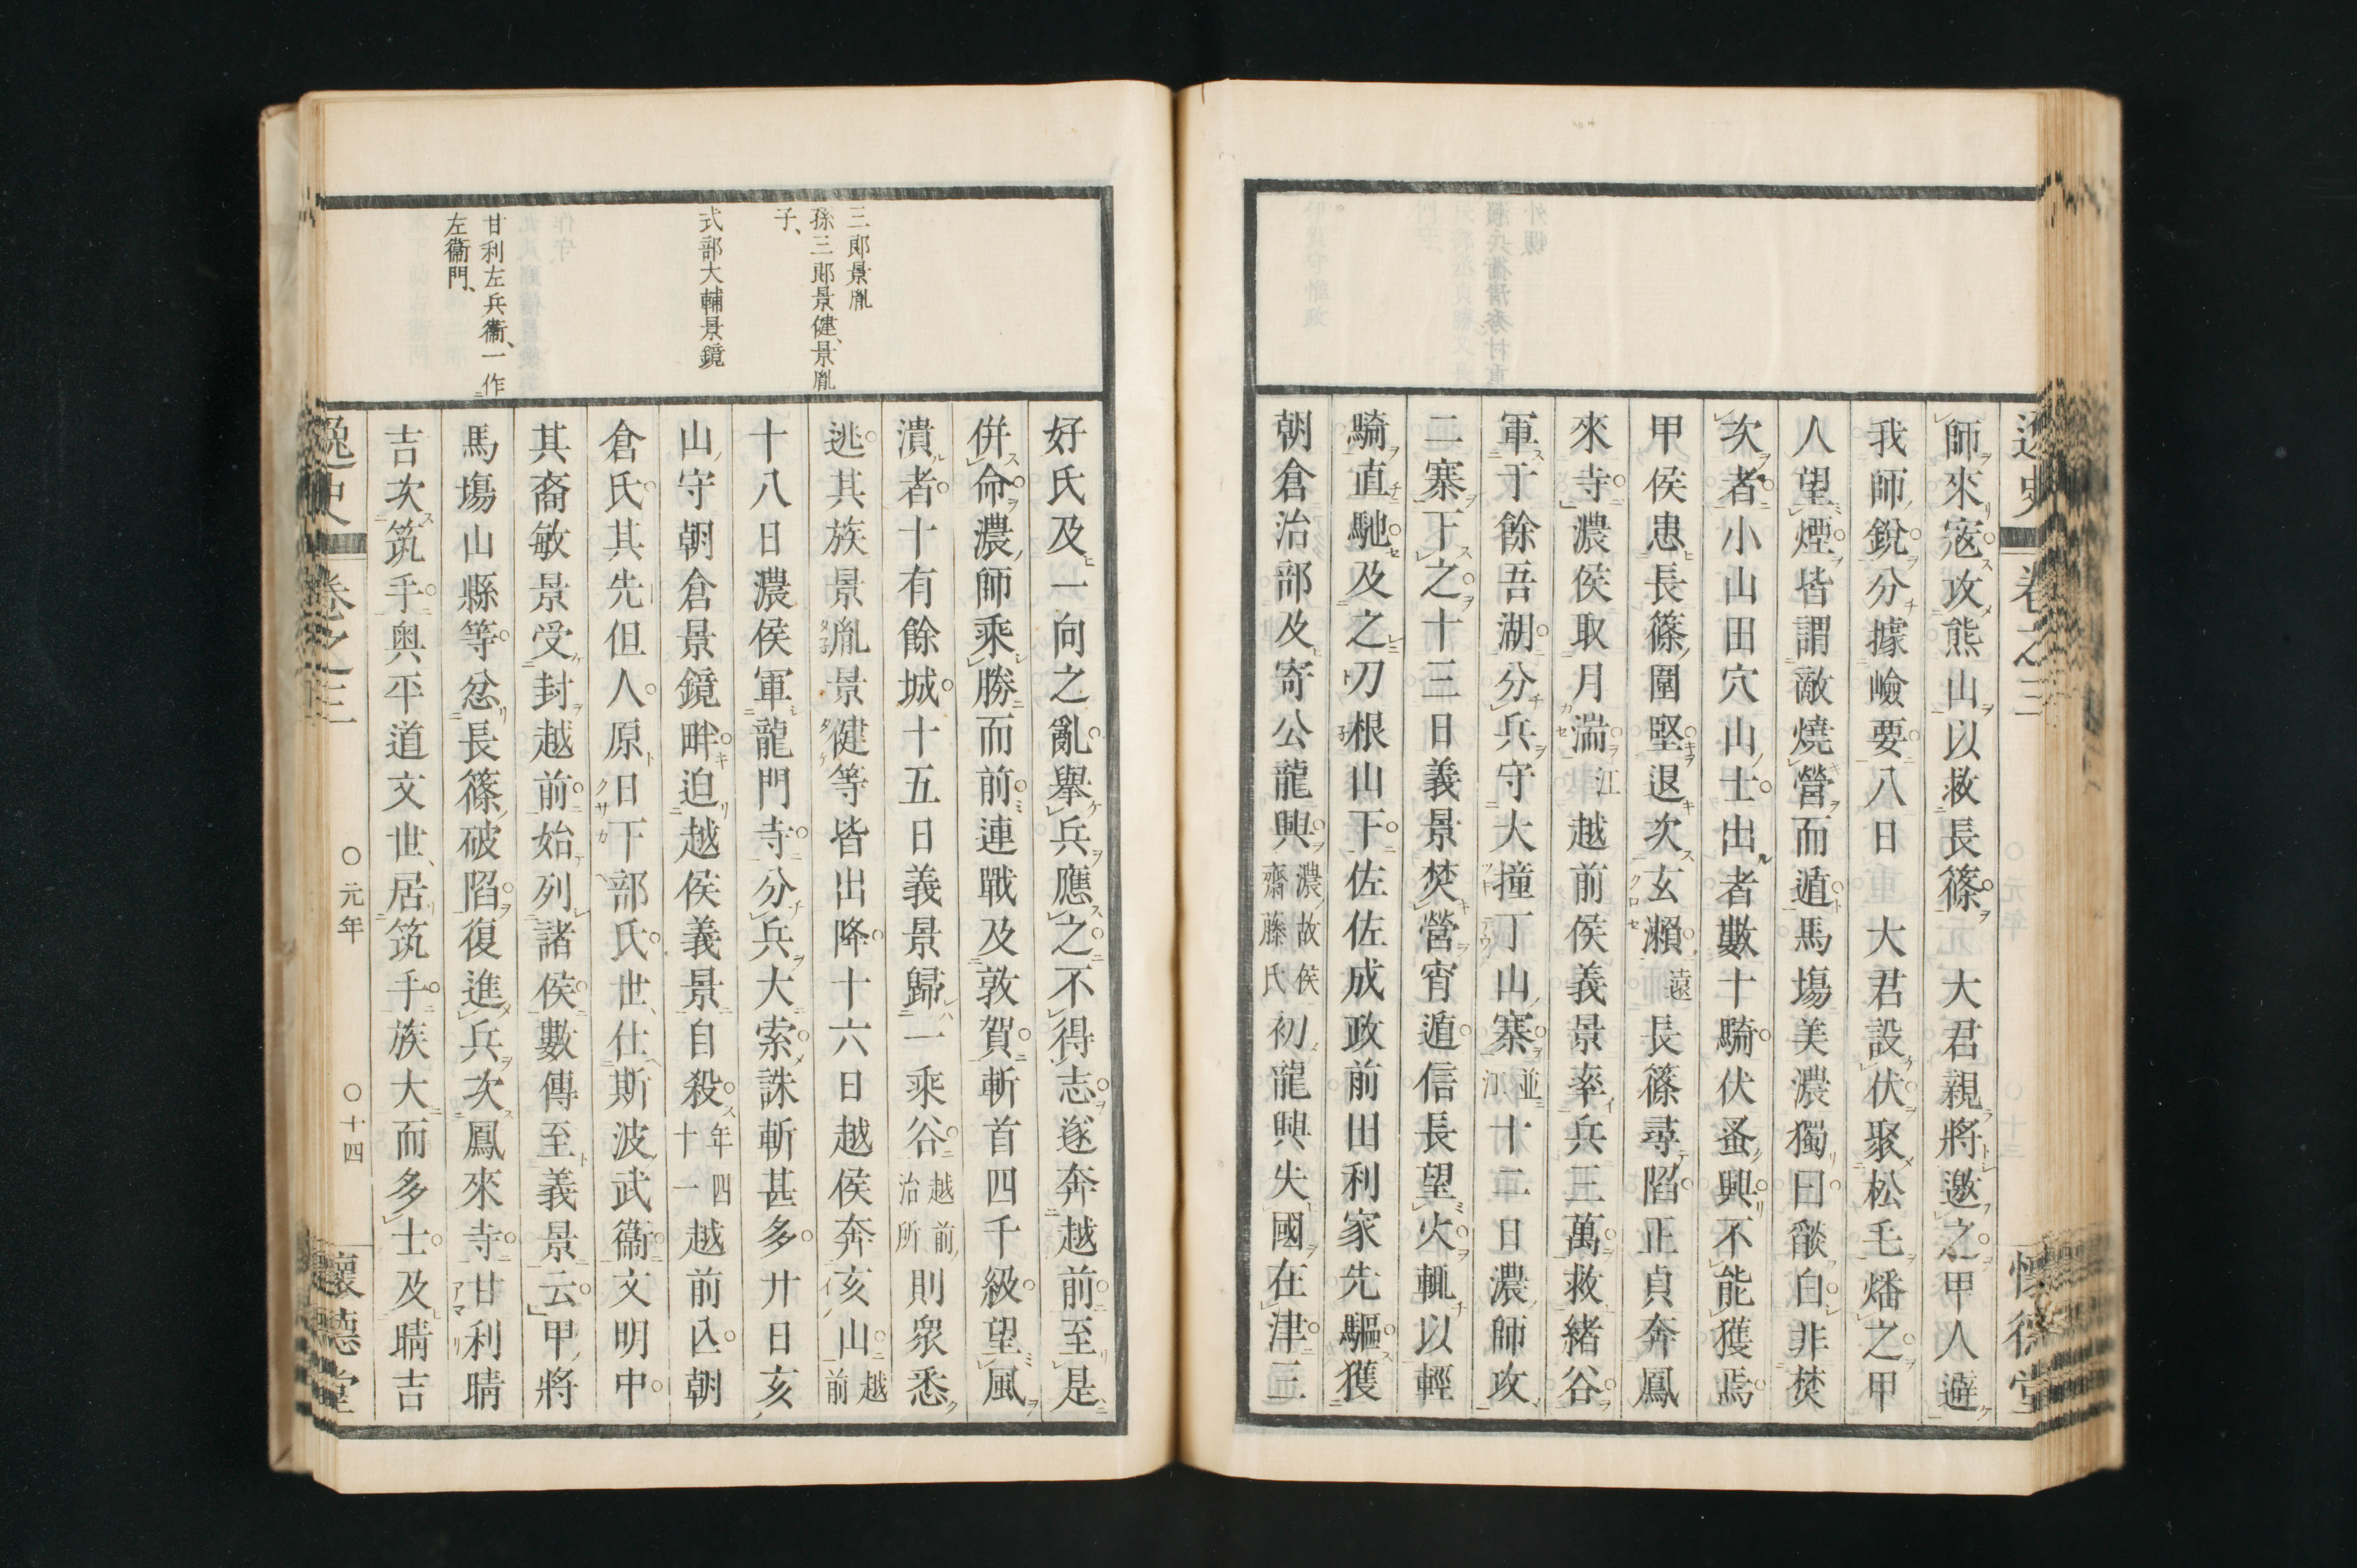 逸史 卷之三 懷德堂
師來寇攻熊山以救長篠 大君親將邀之甲人避
我師銳分據嶮要八日 大君設伏聚松毛燔之甲
人望煙皆謂敵燒營而遁馬塲美濃獨曰燄白非焚
次者小山田穴山士出者數十騎伏蚤興不能獲焉
甲侯患長篠圍堅退次玄瀨遠長篠尋陷正貞奔鳳
來寺濃侯取月湍江越前侯義景率兵三萬救緒谷
軍于餘吾湖分兵守大撞丁山寨並江十二日濃師攻
二寨下之十三日義景焚營宵遁信長望火輒以輕
騎直馳及之刀根山下佐佐成政前田利家先驅獲
朝倉治部及寄公龍興濃故侯齋藤氏初龍興失國在津三
三郞景胤
孫三郞景健、景胤
子、
式部大輔景鏡
甘利左兵衞、一作
左衞門、
好氏及一向之亂舉兵應之不得志遂奔越前至是
併命濃師乘勝而前連戰及敦賀斬首四千級望風
潰者十有餘城十五日義景歸一乘谷越前治所則衆悉
逃其族景胤景健等皆出降十六日越侯奔亥山越前
十八日濃侯軍龍門寺分兵大索誅斬甚多廿日亥
山守朝倉景鏡畔迫越侯義景自殺年四十一越前亾朝
倉氏其先但人原日下部氏世仕斯波武衞文明中
其裔敏景受封越前始列諸侯數傳至義景云甲將
馬塲山縣等忿長篠破陷復進兵次鳳來寺甘利晴
吉次筑手奥平道文世居筑手族大而多士及晴吉
逸史 卷之三 〇元年 〇十四 懷德堂